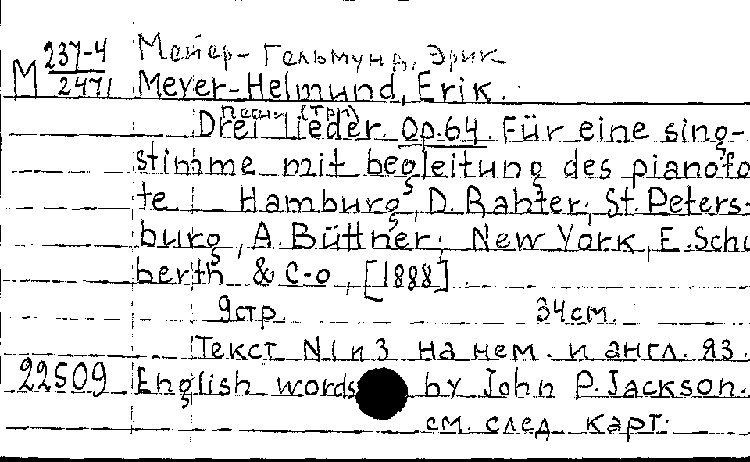 Мейер-Гельмунд, Эрик
М 237-4/2471 Meyer-Helmund, Erik.
Песни (три)
Drei Lieder. Op. 64. Für eine sing-
stimme mit begleitung des pianofo
te. Hamburg, D. Rahter; St. Peters-
burg, A. Büttner; New York, E. Schu
berth & C-o, [1888].
9 стр. 34 см.
Текст N 1 и 3 на нем. и англ. яз.
22509 English words by John P. Jackson.
см. след. карт.